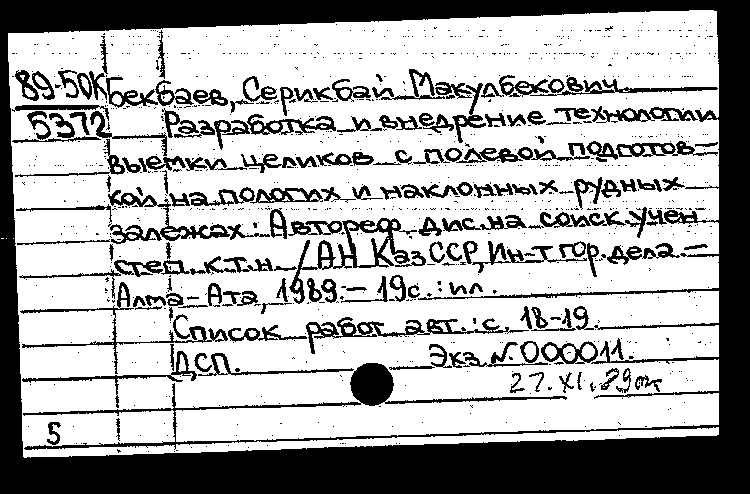 89-50К Бекбаев, Серикбай Макулбекович
5372 Разработка и внедрение технологии
выемки целиков с полевой подготов-
кой на пологих и наклонных рудных
залежах: Автореф. дис. на соиск. учен
степ. к.т.н. / АН КазССР, Ин-т гор. дела. —
Алма-Ата, 1989. — 19с. : ил.
Список работ авт. : с. 18-19.
ДСП. Экз. № 000011.
27. XI. 89
5